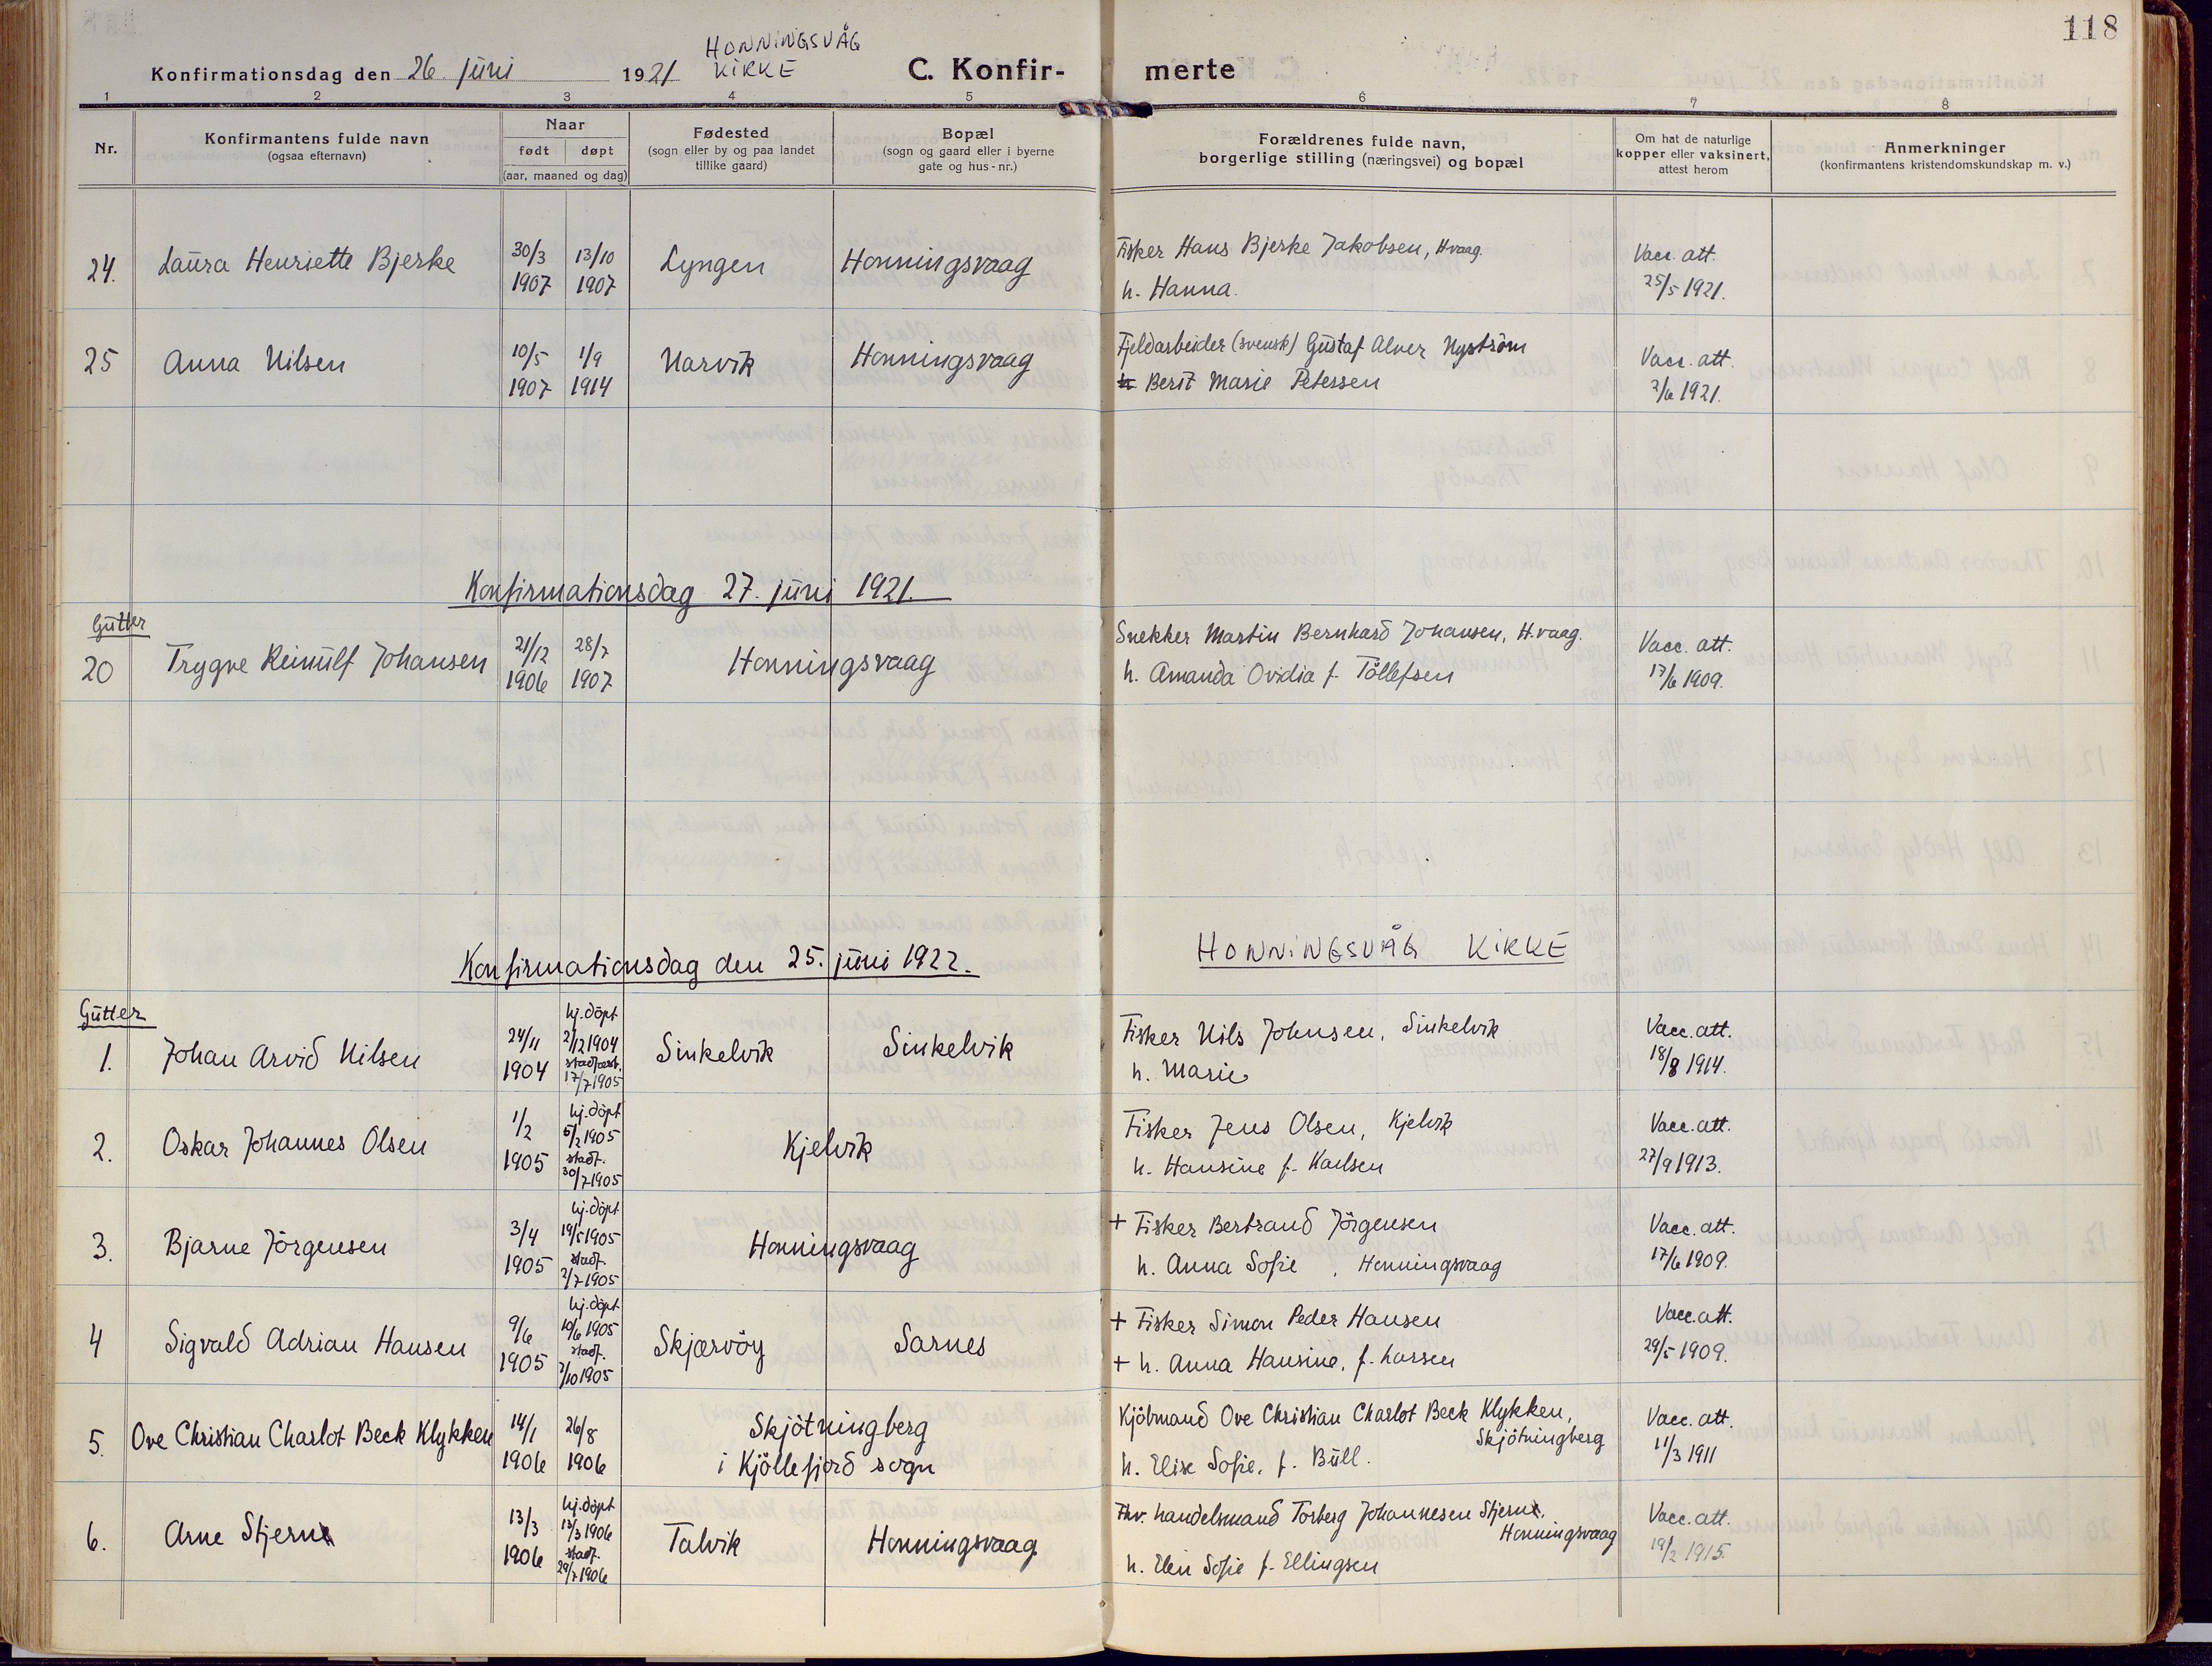 118
HONNINGSVÅG
Konfirmationsdag den 26. juni 1921 KIRKE C. Konfir- merte
1 2 3 4 5 6 7 8
Nr.
Konfirmantens fulde navn
(ogsaa efternavn)
Naar
født døpt
(aar, maaned og dag)
Fødested
(sogn eller by og paa landet
tillike gaard)
Bopæl
(sogn og gaard eller i byerne
gate og hus-nr.)
Forældrenes fulde navn,
borgerlige stilling (næringsvei) og bopæl
Om hat de naturlige
kopper eller vaksinert,
attest herom
Anmerkninger
(konfirmantens kristendomskundskap m. v.)
24. Laura Henriette Bjerke 30/3 1907 13/10 1907 Lyngen Honningsvaag
Fisker Hans Bjerke Jakobsen, Hvaag.
h. Hanna.
Vacc. att.
25/5 1921.
25 Anna Nilsen 10/5 1907 1/9 1914 Narvik Honningsvaag
Fjeldarbeider (svensk) Gustaf Alver Nyström
Berit Marie Petersen
Vacc. att.
2/6 1921.
Konfirmationsdag 27. juni 1921.
Gutter
20 Trygve Reinulf Johansen 21/12 1906 28/7 1907 Honningsvaag
Snekker Martin Bernhard Johansen, H.vaag.
h. Amanda Ovidia f. Töllefsen
Vacc. att.
17/6 1909.
Konfirmationsdag den 25. juni 1922. HONNINGSVÅG KIRKE
Gutter
1. Johan Arvid Nilsen 24/11 1904
hj.döpt
2/12 1904
stadfæst.
17/7 1905
Sinkelvik Sinkelvik
Fisker Nils Johnsen, Sinkelvik
h. Marie
Vacc. att.
18/8 1914.
2. Oskar Johannes Olsen 1/2 1905
hj.döpt
5/2 1905
stadf.
30/7 1905
Kjelvik
Fisker Jens Olsen, Kjelvik
h. Hansine f. Karlsen
Vacc. att.
27/9 1913.
3. Bjarne Jörgensen 3/4 1905
hj.döpt
19/5 1905
stadf.
2/7 1905
Honningsvaag
+ Fisker Bertrand Jörgensen
h. Anna Sofie , Honningsvaag
Vacc. att.
17/6 1909.
4 Sigvald Adrian Hansen 9/6 1905
hj.döpt
10/6 1905
stadf.
2/10 1905
Skjærvöy Sarnes
+ Fisker Simon Peder Hansen
+ h. Anna Hansine, f. Larsen
Vacc. att.
29/5 1909.
5. Ove Christian Charlot Beck Klykken 14/1 1906 26/8 1906
Skjötningberg
i Kjöllefjord sogn
Kjöbmand Ove Christian Charlot Beck Klykken,
Skjötningberg
h. Elise Sofie, f. Büll.
Vacc. att.
11/3 1911
6. Arne Stjern 13/3 1906
hj.döpt
13/3 1906
stadf.
29/7 1906
Talvik Honningsvaag
Fhv. handelsmand Torberg Johannesen Stjern,
Honningsvaag
h. Elen Sofie f. Ellingsen
Vacc. att.
19/2 1915.